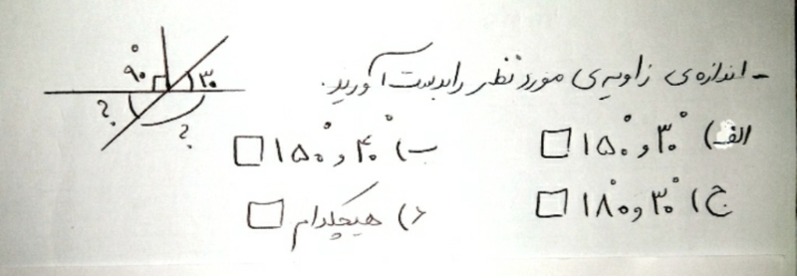 ۹۰° ۳۰
؟ ؟
- اندازه‌ی زاویه‌ی مورد نظر را بدست آورید.
الف) ۳۰° و ۱۵۰° □ ب) ۴۰° و ۱۵۰° □
ج) ۳۰° و ۱۸۰° □ د) هیچکدام □